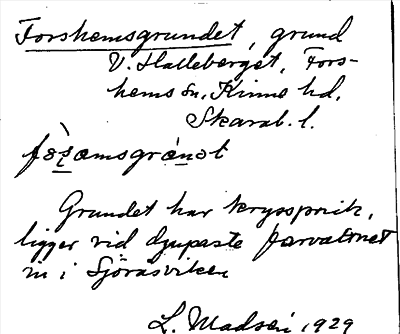 Forshemsgrundet, grund
V. Halleberget, Fors-
hems sn, Kinne hd,
Skarab. l.
Grundet har kryssprick,
ligger vid djupaste farvattnet
in i Sjöråsviken
L. Madsén 1929